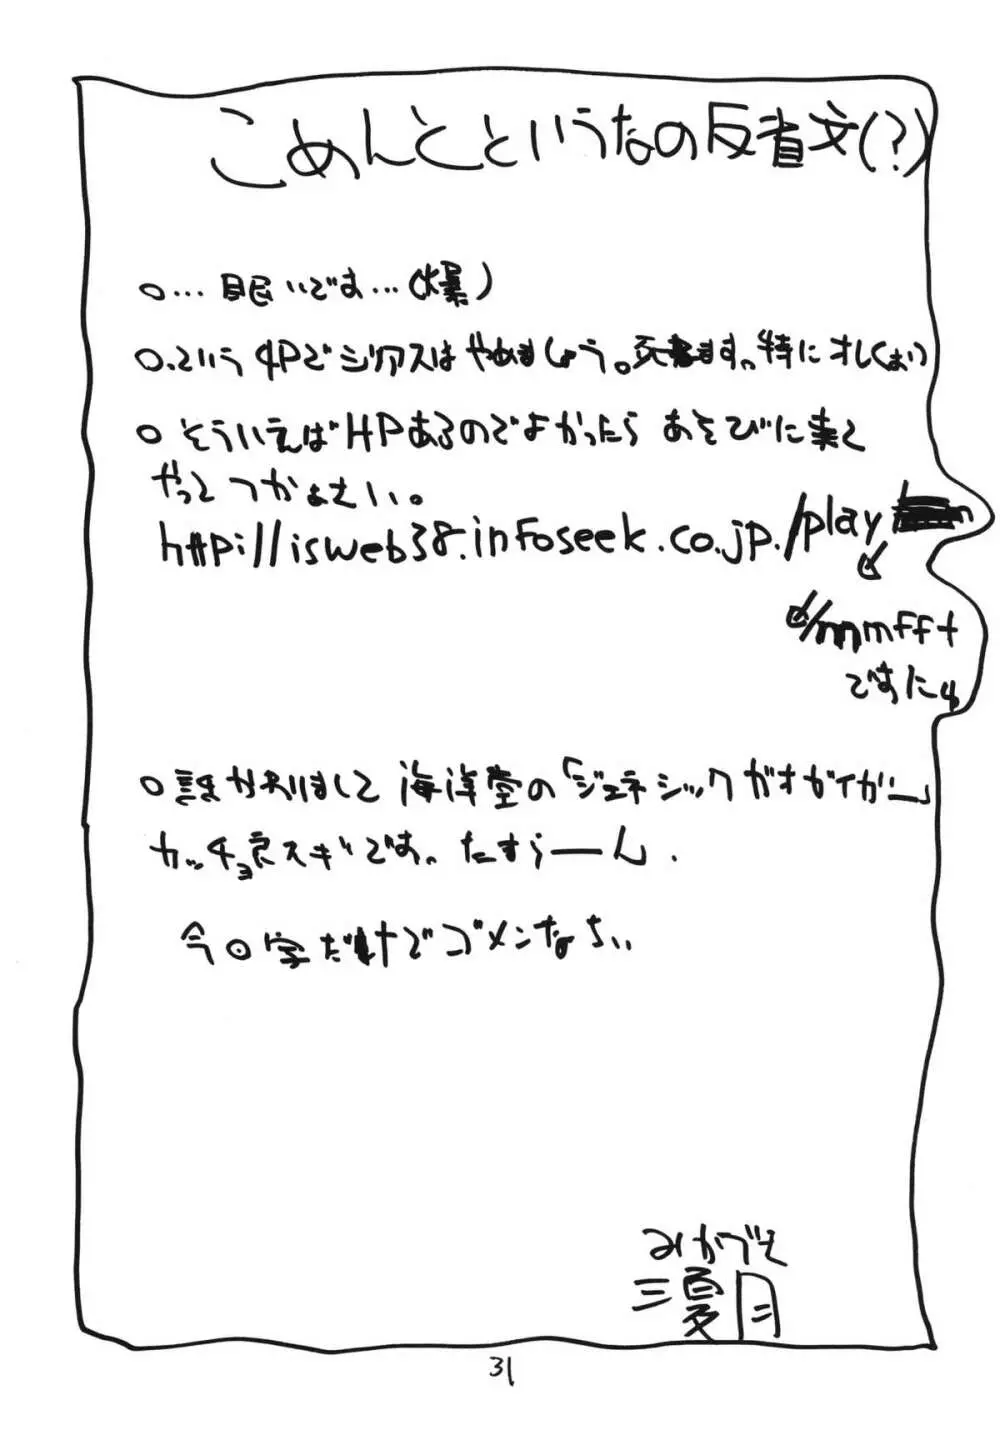 こめんとというなの反省文(?)
○…眠いです…(爆)
○.という4Pでシリアスはやめましょう。死ねます。特にオレくあい
○そういえばHPあるのでよかったらあそびに来て
やってつかぁさい。
http://isweb38.infoseek.co.jp./play
/mmfft
ですにゅ
○誰かわりまして 海洋堂の「ジェネシックガオガイガー」
カッチョ良スギです。たすらーん.
今回字だけでゴメンなちい
みかづき
三夏月
31